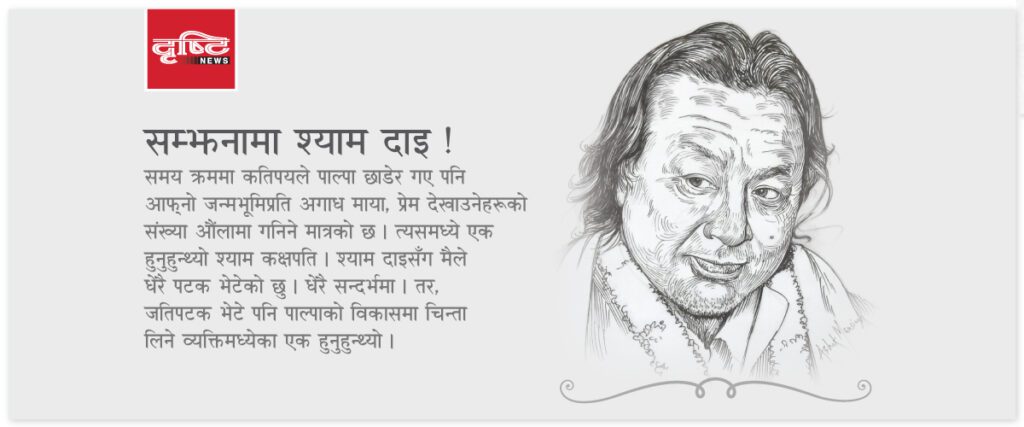 दृष्टि
NEWS
सम्झनामा श्याम दाइ !
समय क्रममा कतिपयले पाल्पा छाडेर गए पनि
आफ्नो जन्मभूमिप्रति अगाध माया, प्रेम देखाउनेहरूको
संख्या औंलामा गनिने मात्रको छ । त्यसमध्ये एक
हुनुहुन्थ्यो श्याम कक्षपति । श्याम दाइसँग मैले
धेरै पटक भेटेको छु । धेरै सन्दर्भमा । तर,
जतिपटक भेटे पनि पाल्पाको विकासमा चिन्ता
लिने व्यक्तिमध्येका एक हुनुहुन्थ्यो ।